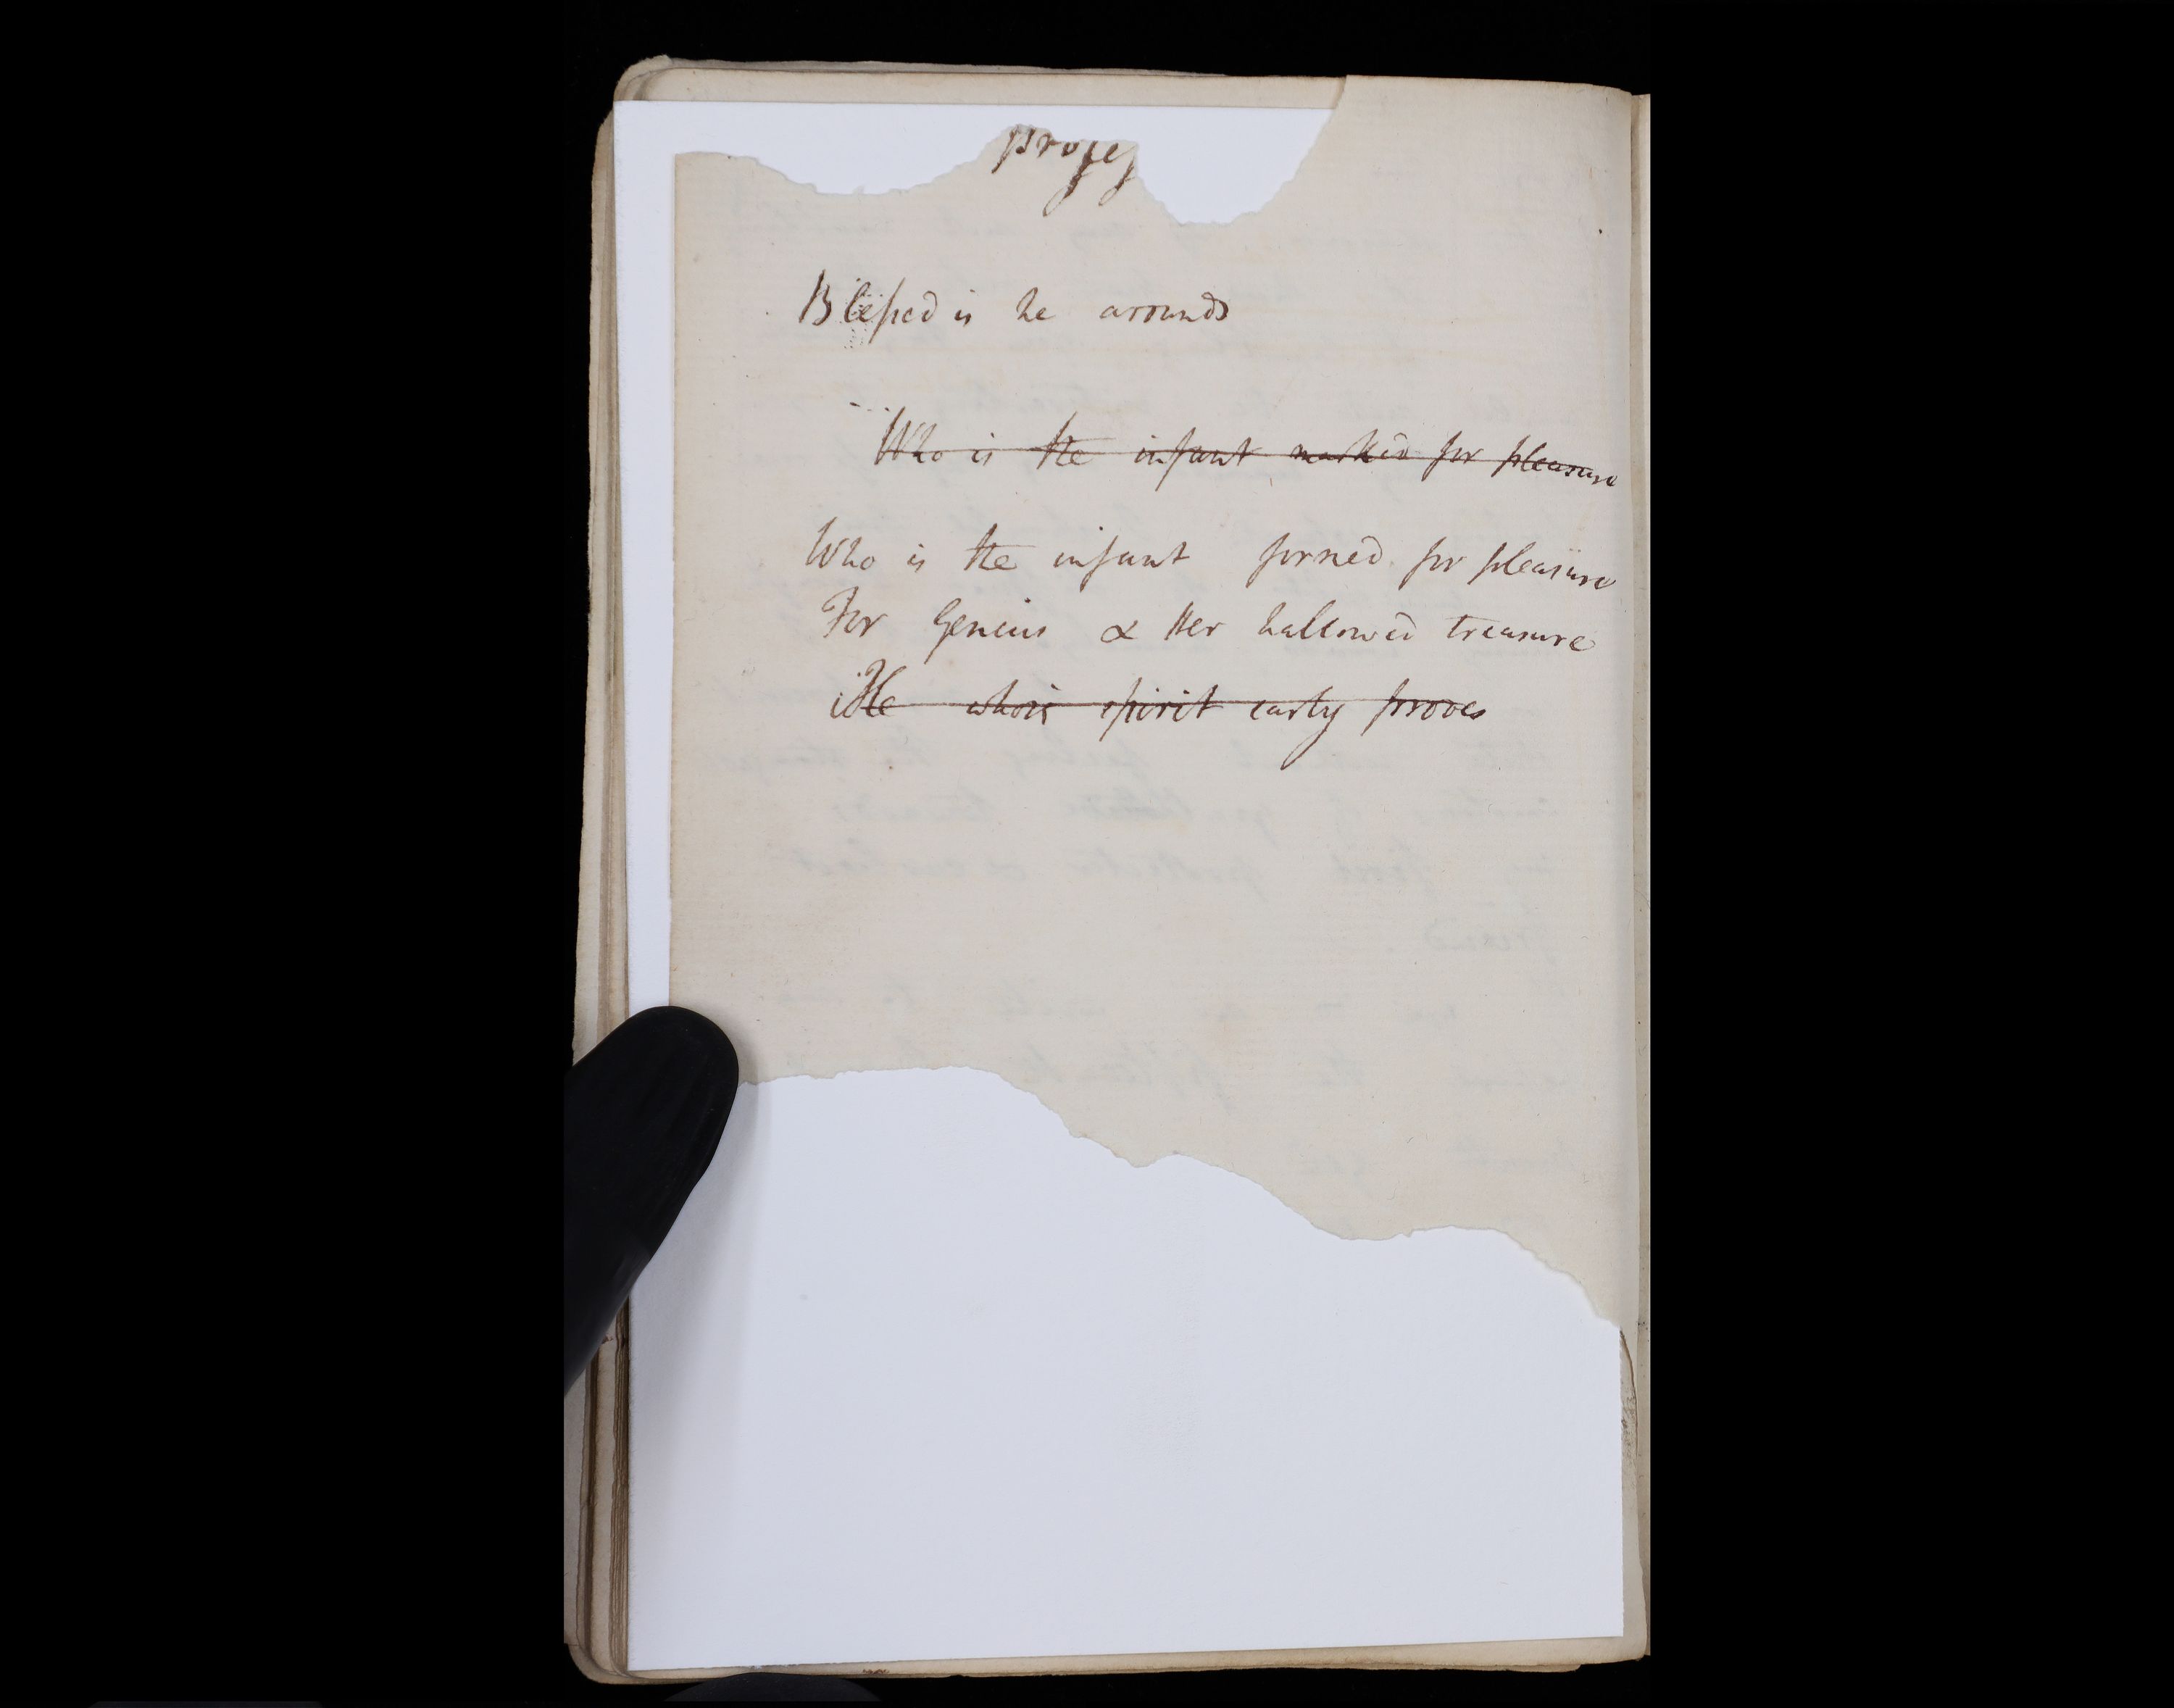 Blessed is he arounds
Who is the infant marked for pleasure
Who is the infant formed for pleasure
For Genius & Her hallowed treasure
He whose spirit early proves